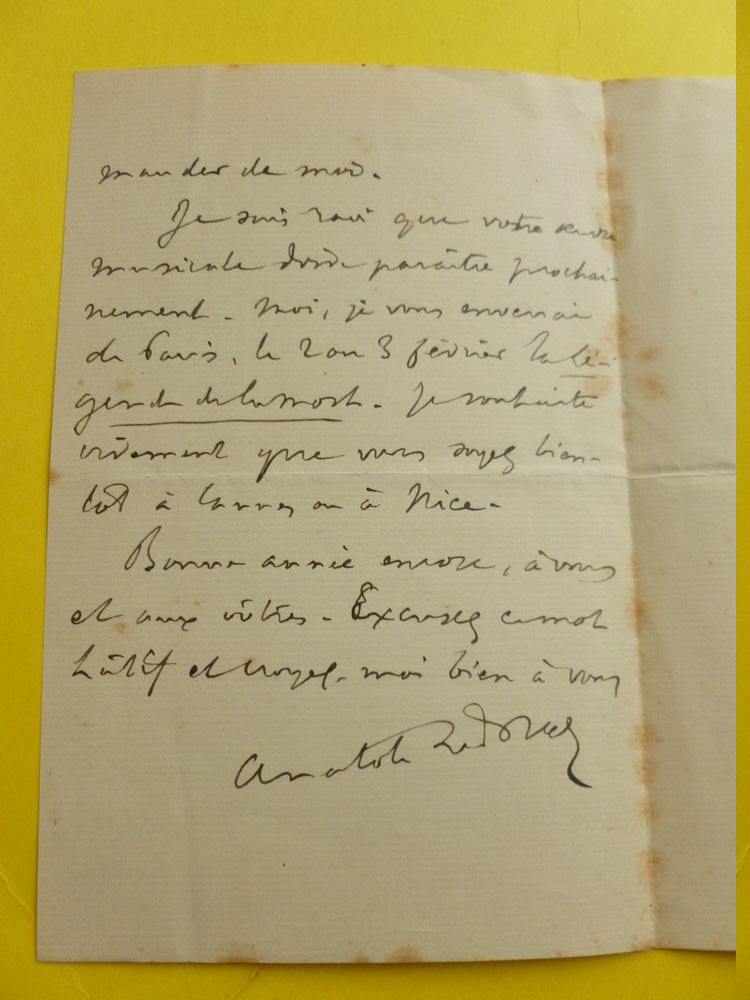 mander de moi.
Je suis ravi que votre œuvre
musicale doive paraître prochai-
nement. Moi, je vous enverrai
de Paris, le 2 ou 3 février la Lé-
gende de la mort. Je souhaite
vivement que vous soyez bien-
tôt à Cannes ou à Nice.
Bonne année encore, à vous
et aux vôtres. Excusez ce mot
hâtif et croyez-moi bien à vous
Anatole Le Braz